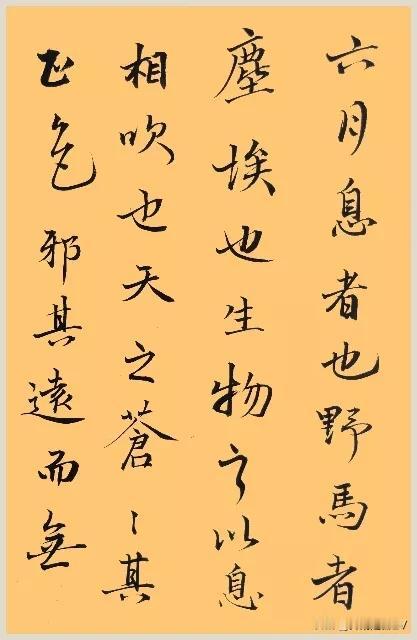 六月息者也野馬者
塵埃也生物之以息
相吹也天之蒼〻其
正色邪其遠而無